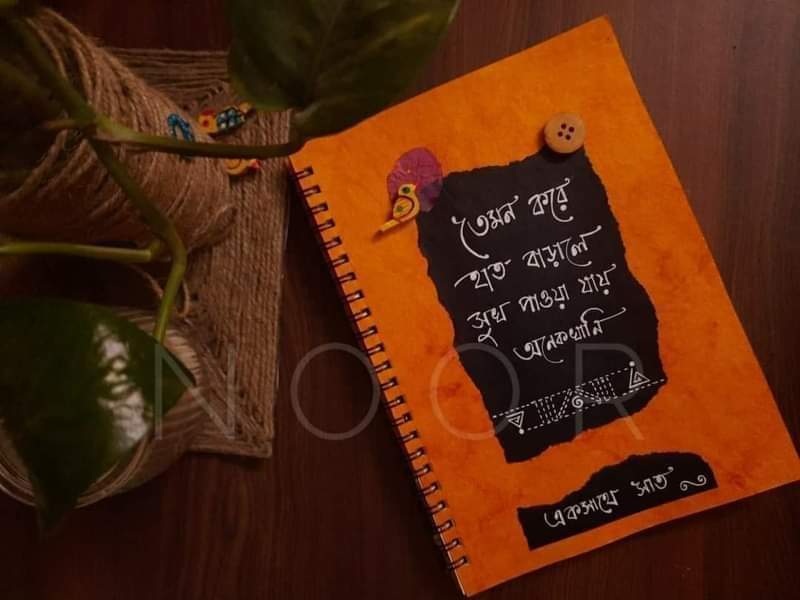 তেমন করে
হাত বাড়ালে
সুখ পাওয়া যায়
অনেকখানি
একসাথে সাত
NOOR